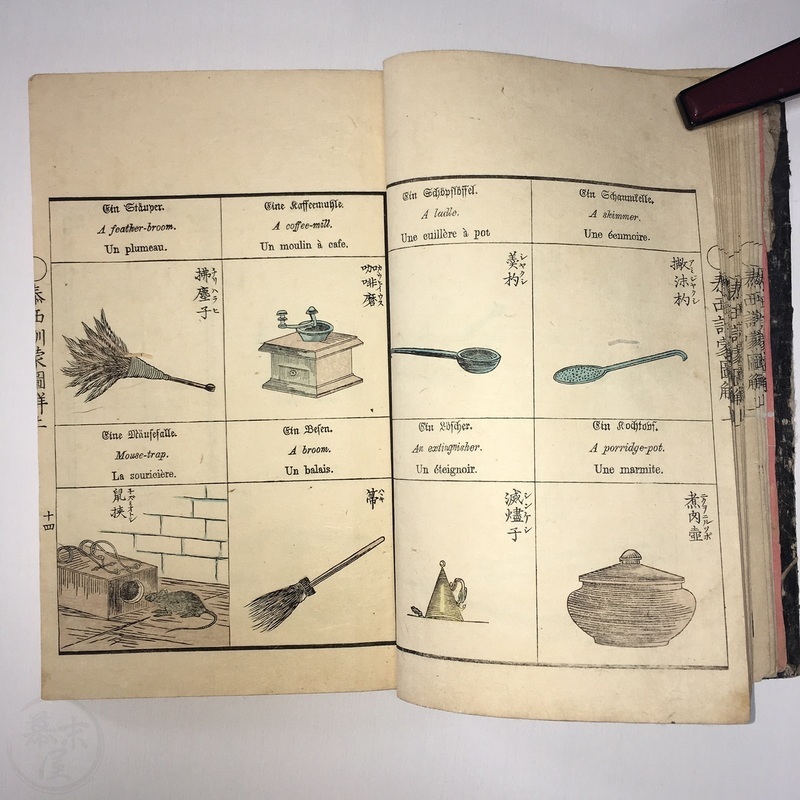 Ein Stäuper.
A feather-broom.
Un plumeau.
拂塵子
Eine Kaffeemuhle.
A coffee-mill.
Un moulin à cafe.
咖啡磨
Ein Schöpflöffel.
A laille.
Une cuillère à pot
羹杓
シャクシ
Ein Schaumkelle.
A skimmer.
Une écumoire.
撇沫杓
アミジャクシ
Eine Mäusefalle.
Mouse-trap.
La souricière.
鼠挾
Ein Besen.
A broom.
Un balais.
箒
Ein Löscher.
An extinguisher.
Un éteignoir.
滅燼子
Ein Kochtopf.
A porridge-pot.
Une marmite.
煮肉壺
泰西訓蒙圖解上
十四
泰西訓蒙圖解上